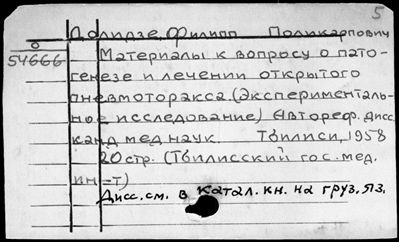 5
Долидзе, Филипп Поликарпович
0
54666
Материалы к вопросу о пато-
генезе и лечении открытого
пневмоторакса. (Эксперименталь-
ное исследование) Автореф. дисс.
канд мед наук. Тбилиси, 1958
20 стр. (Тбилисский гос. мед.
ин-т)
Дисс. см. в катал. кн. на груз. яз.